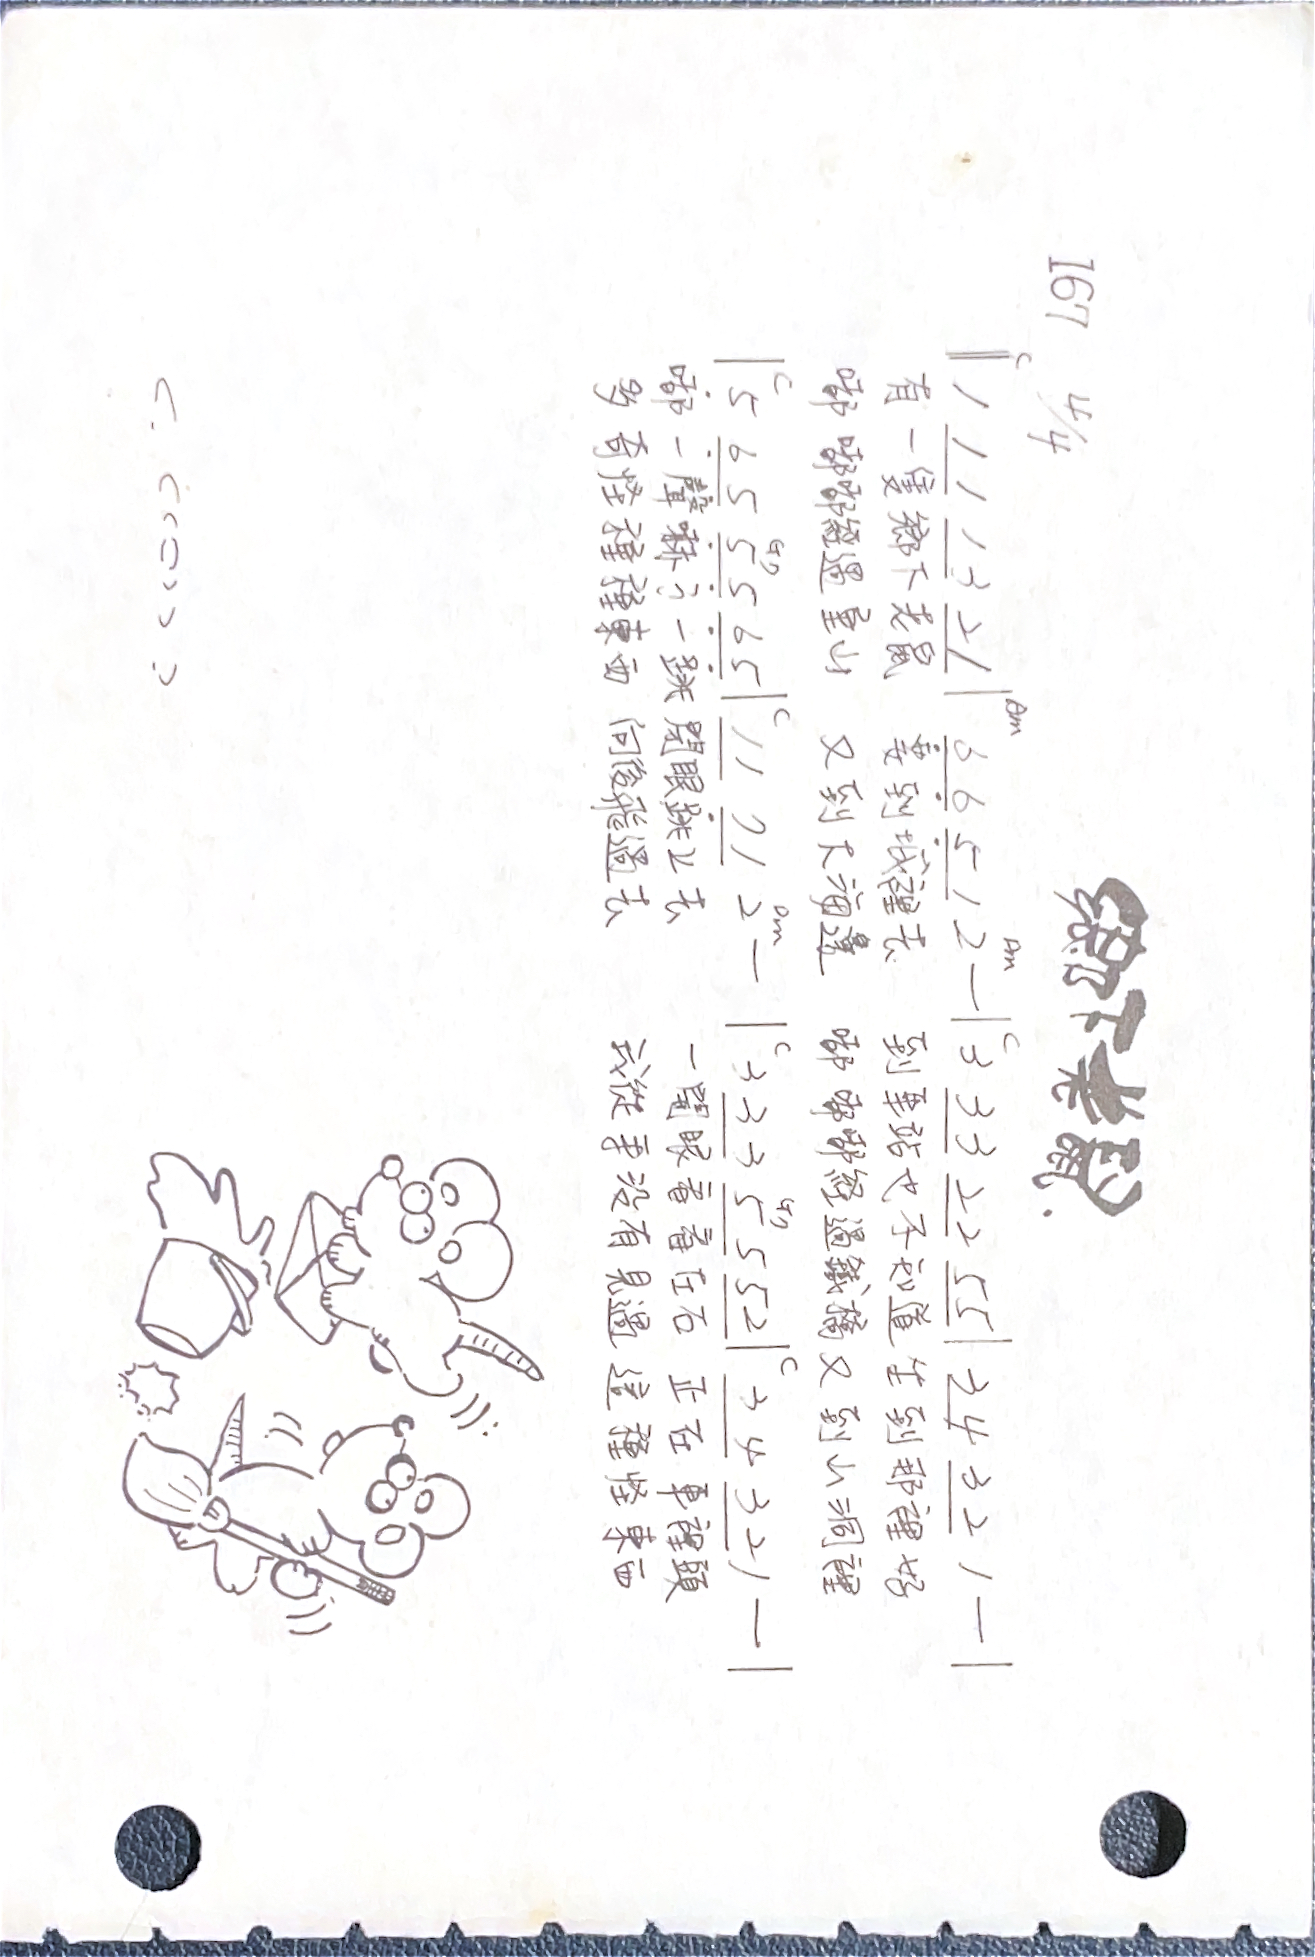 鄉下老鼠.
167 4/4
C Am Am C
‖ 1 1 1 1 3 2 1 | 6 6 5 1 2 — | 3 3 3 2 2 5 5 | 3 4 3 2 1 — |
有一隻鄉下老鼠 要到城裡去 到車站也不知道 坐到那裡好
嘟嘟嘟經過重山 又到大海邊 嘟嘟嘟経過鐵橋 又到山洞裡
C G7 C Dm C G7 C
| 5 6 5 5 5 6 5 | 1 1 7 1 2 — | 3 3 3 5 5 5 2 | 3 4 3 2 1 — |
嘟一聲嚇了一跳 閉眼跳上去 一開眼看看左右 正在車裡頭
多奇怪種種東西 向後飛過去 我從來没有見過 這種怪東西